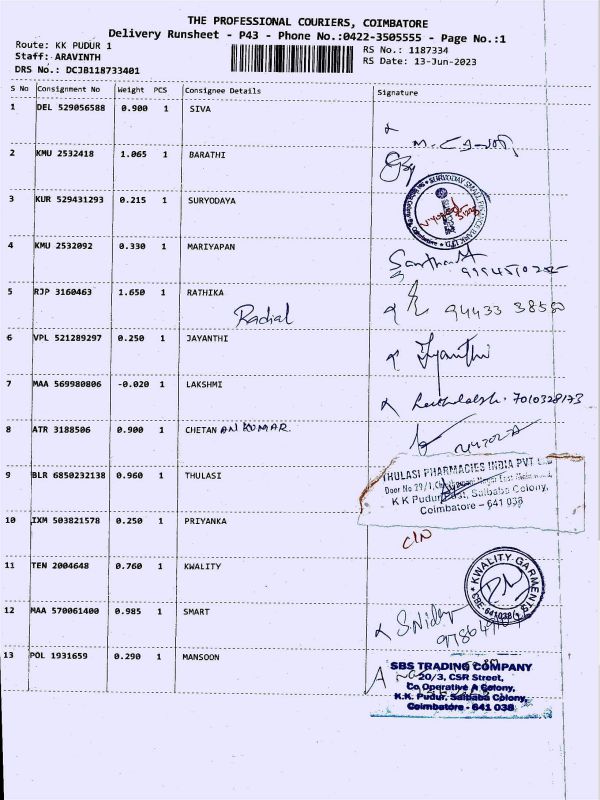 THE PROFESSIONAL COURIERS, COIMBATORE
Delivery Runsheet - P43 - Phone No.:0422-3505555 - Page No.:1
Route: KK PUDUR 1 RS No.: 1187334
Staff: ARAVINTH RS Date: 13-Jun-2023
DRS No.: DCJB118733401
S No Consignment No Weight PCS Consignee Details Signature
1 DEL 529056588 0.900 1 SIVA
2 KMU 2532418 1.065 1 BARATHI
3 KUR 529431293 0.215 1 SURYODAYA
SURYODAY SMALL FINANCE BANK LTD
4 KMU 2532092 0.330 1 MARIYAPAN
5 RJP 3160463 1.650 1 RATHIKA
Radial 94433 38550
6 VPL 521289297 0.250 1 JAYANTHI
Jyanthi
7 MAA 569980806 -0.020 1 LAKSHMI
7010328173
8 ATR 3188506 0.900 1 CHETAN AN KUMAR
9 BLR 6850232138 0.960 1 THULASI
THULASI PHARMACIES INDIA PVT
Door No 29/1,
K K Pudur Post, Saibaba Colony,
Coimbatore - 641 038
10 IXM 503821578 0.250 1 PRIYANKA
C/N
11 TEN 2004648 0.760 1 KWALITY
KWALITY GARMENTS
CBE-641038
12 MAA 570061400 0.985 1 SMART
13 POL 1931659 0.290 1 MANSOON
SBS TRADING COMPANY
20/3, CSR Street,
Co Operative A Colony,
K.K. Pudur, Saibaba Colony,
Coimbatore - 641 038